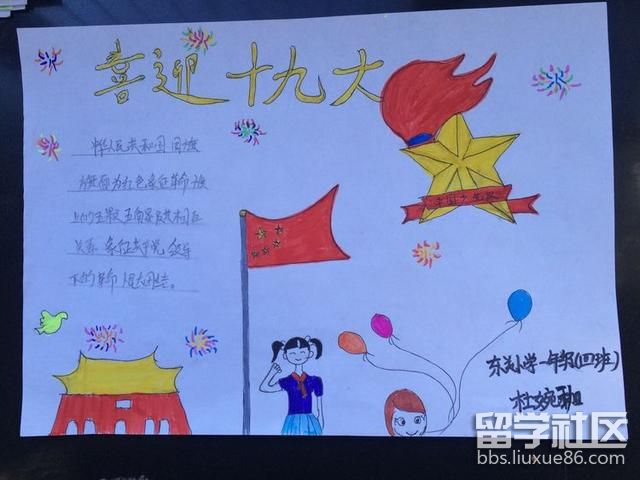 喜迎十九大
中华人民共和国国旗
旗面为红色象征革命旗
上的五颗五角星及其相互
关系 象征共产党领导
下的革命 大团结。
东关小学一年级(四班)
留学社区
bbs.liuxue86.com